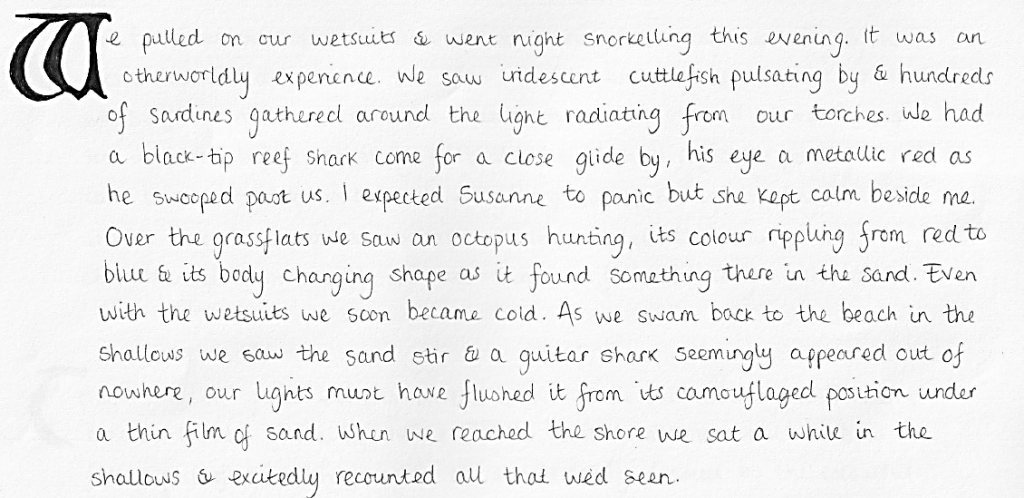 We pulled on our wetsuits & went night snorkelling this evening. It was an
otherworldly experience. We saw iridescent cuttlefish pulsating by & hundreds
of sardines gathered around the light radiating from our torches. We had
a black-tip reef shark come for a close glide by, his eye a metallic red as
he swooped past us. I expected Susanne to panic but she kept calm beside me.
Over the grassflats we saw an octopus hunting, its colour rippling from red to
blue & its body changing shape as it found something there in the sand. Even
with the wetsuits we soon became cold. As we swam back to the beach in the
shallows we saw the sand stir & a guitar shark seemingly appeared out of
nowhere, our lights must have flushed it from its camouflaged position under
a thin film of sand. When we reached the shore we sat a while in the
shallows & excitedly recounted all that we'd seen.